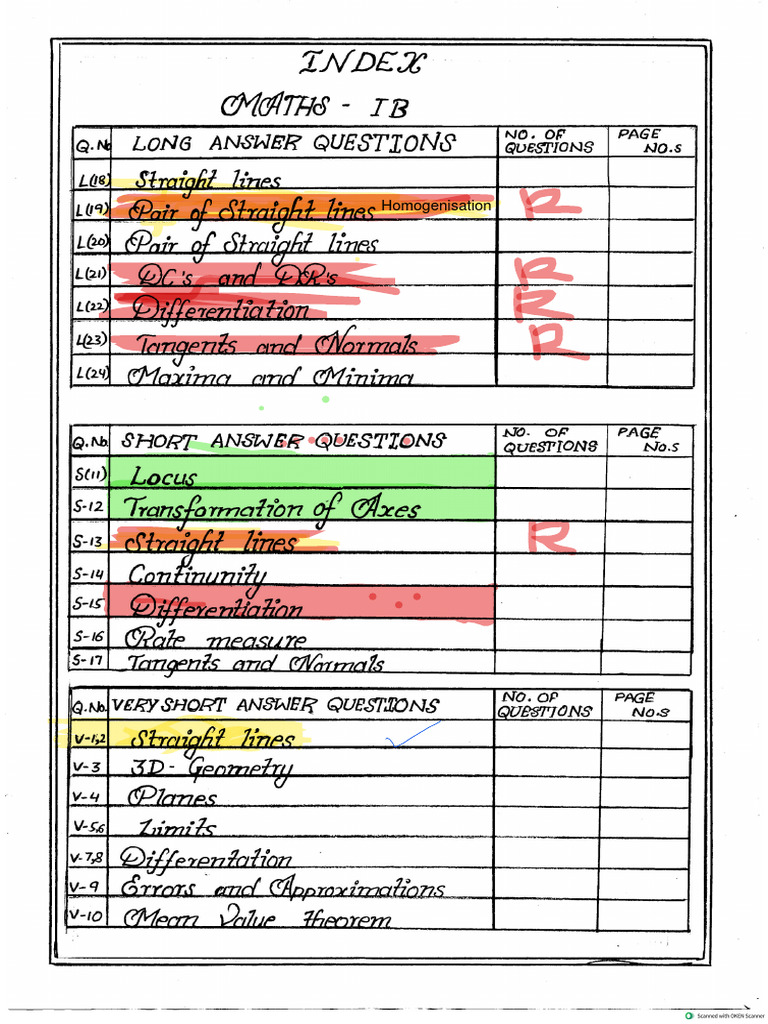 INDEX
MATHS - IB
Q.No LONG ANSWER QUESTIONS NO. OF QUESTIONS PAGE NO.S
L(18) Straight lines
L(19) Pair of Straight lines Homogenisation R
L(20) Pair of Straight lines
L(21) DC's and DR's R
L(22) Differentiation R
L(23) Tangents and Normals R
L(24) Maxima and Minima
Q.No. SHORT ANSWER QUESTIONS NO. OF QUESTIONS PAGE NO.S
S(11) Locus
S-12 Transformation of Axes
S-13 Straight lines R
S-14 Continunity
S-15 Differentiation
S-16 Rate measure
S-17 Tangents and Normals
Q.No. VERY SHORT ANSWER QUESTIONS NO. OF QUESTIONS PAGE NO.S
V-1,2 Straight lines
V-3 3D - Geometry
V-4 Planes
V-5,6 Limits
V-7,8 Differentation
V-9 Errors and Approximations
V-10 Mean Value theorem
Scanned with OKEN Scanner